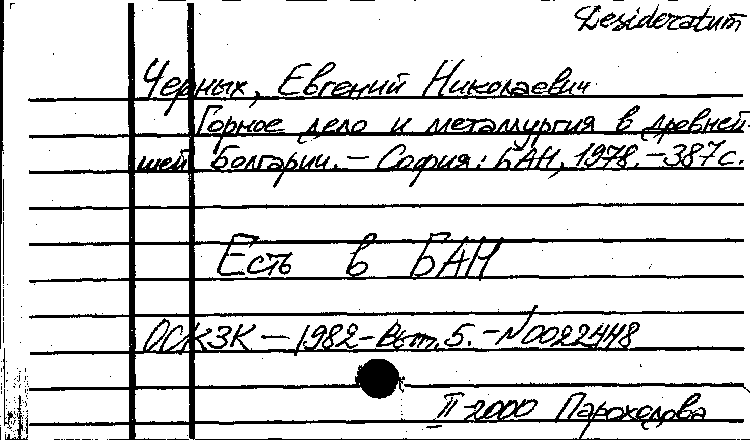 Desideratum
Черных, Евгений Николаевич
Горное дело и металлургия в древней-
шей Болгарии. – София: БАН, 1978. – 387 с.
Есть в БАН
ОСКЗК – 1982 – Вып. 5. – N0022448
II 2000 Пароходова